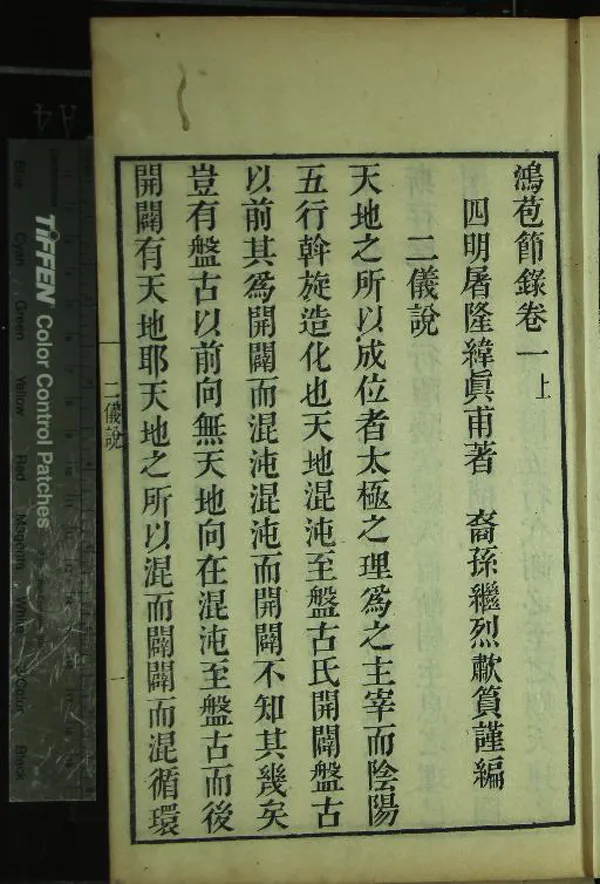 鴻苞節錄卷一上
四明屠隆緯眞甫著 裔孫繼烈歗篔謹編
二儀說
天地之所以成位者太極之理爲之主宰而陰陽
五行斡旋造化也天地混沌至盤古氏開闢盤古
以前其爲開闢而混沌混沌而開闢不知其幾矣
豈有盤古以前向無天地向在混沌至盤古而後
開闢有天地耶天地之所以混而闢闢而混循環
二儀說
一
A4
TIFFEN Color Control Patches
Blue
Cyan
Green
Yellow
Red
Magenta
White
3/Color
Black